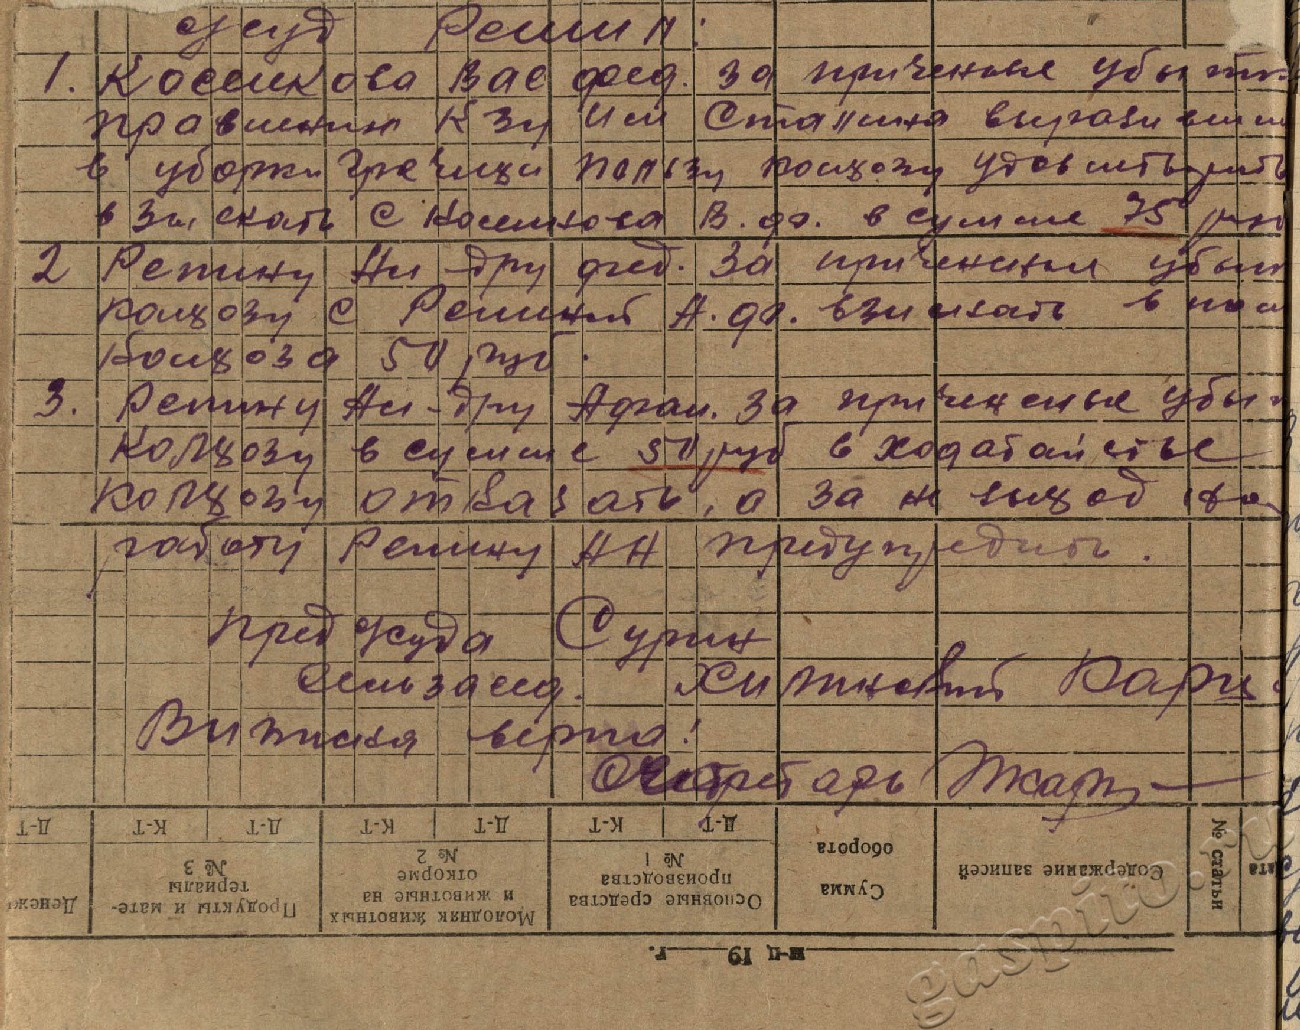 суд Решил:
1. Косликова Вас фед. за причененые убытк
правлении Кзу Им Сталина выразивши
в уборки гречихи пользу колхозу удовлетворить
взыскать с Косликова В. ф. в сумме 75 руб
2 Репину Ал-дру фед. за прическные убыт
колхозу с Репиный А. ф. взыскать в пол
Колхоза 50 руб.
3. Репину Ал-дру Афан. за причененые убы
Колхозу в сумме 50 руб в ходатайстве
Колхозу отказать, а за не выход на
работу Репину АН предупредить.
пред суда Сурин
Сельзасед.
Выписка верна!
Секретарь
Д-Т К-Т Д-Т К-Т Д-Т К-Т Д-Т
Денежн Продукты и мате-териалы № 3 Молодняк животных и животные на откорме № 2 Основные средства производства № 1 Сумма оборота Содержание записей № статьи Дата
м-ц 19 г.
gaspito.ru